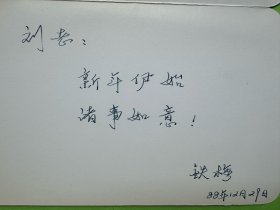 刘志：
新年伊始
诸事如意！
秋梅
88年12月29日